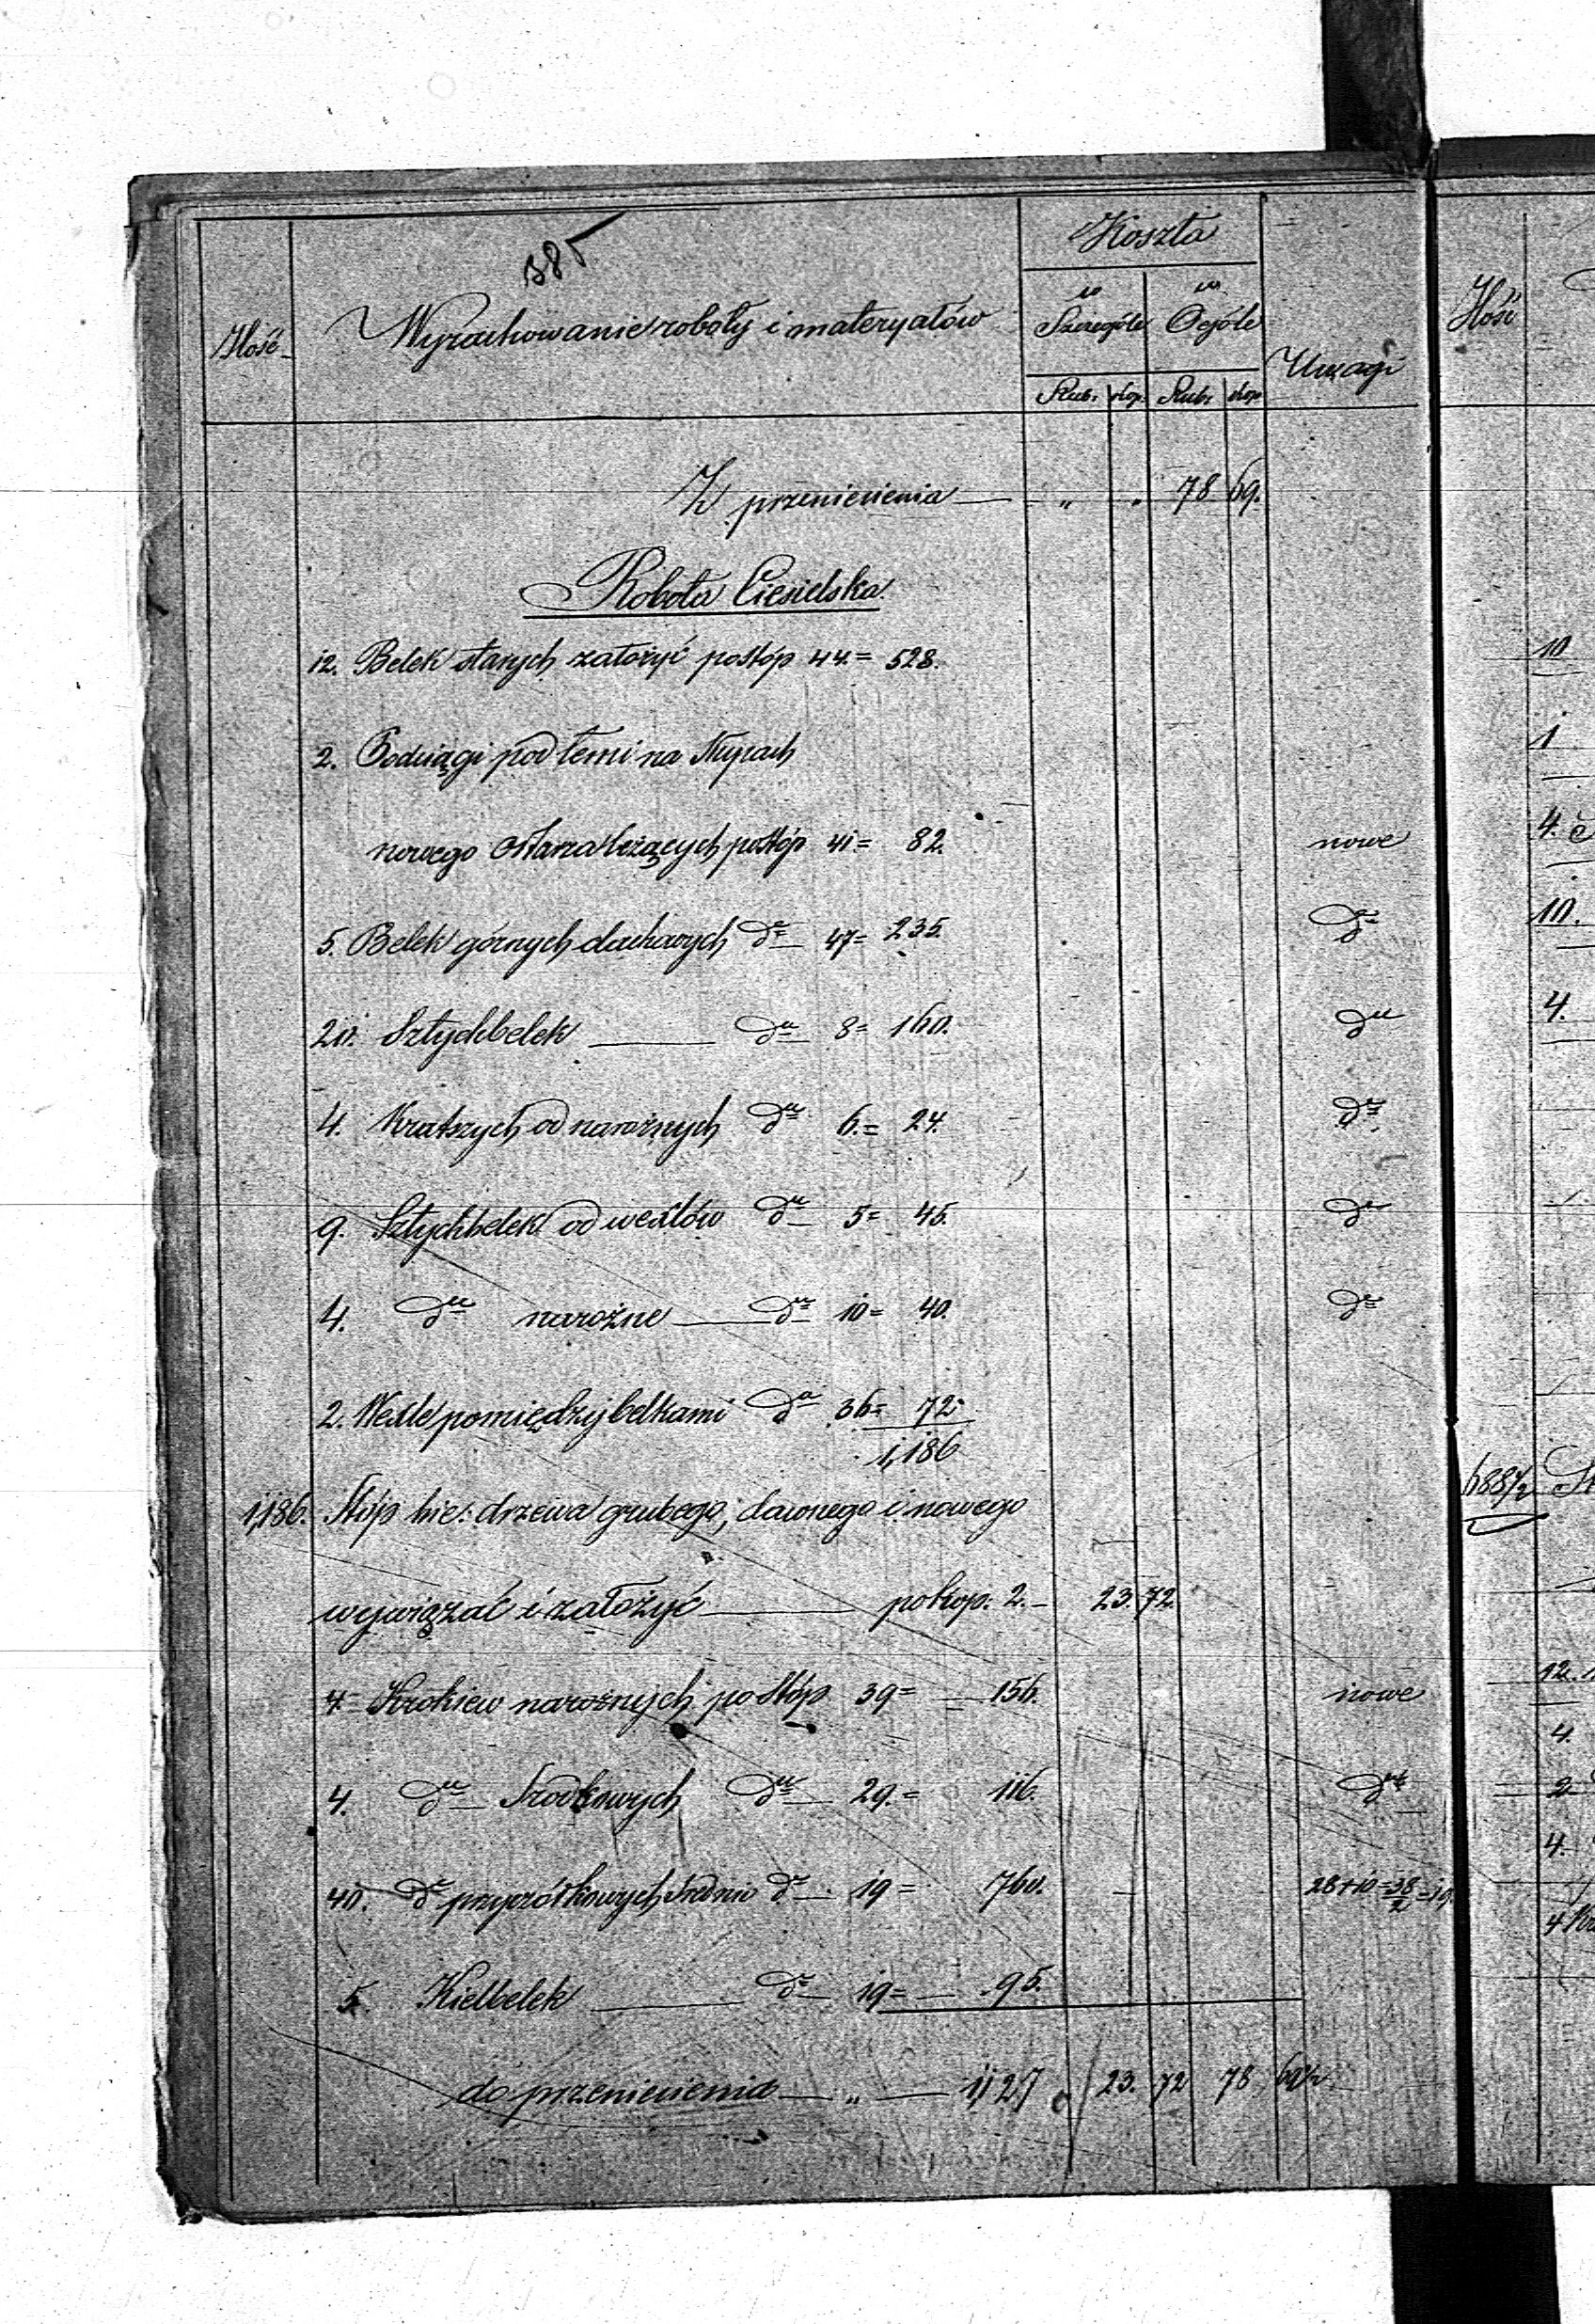 385
Ilość
Wyrachowanie roboty i materyałów
Koszta
w Szczególe
w Ogóle
Uwagi
Rub. kop. Rub. kop.
Z przeniesienia — „ . 78 69.
Robota Ciesielska
12. Belek starych założyć po stóp 44. = 528.
2. Podciągi pod temi na słupach
nowego ołtarza leżących po stóp 41 = 82. nowe
5. Belek górnych dachowych do 47 = 235. do
20. Sztychbelek — do 8 = 160. do
4. Kratszych od narożnych do 6. = 24. do
9. Sztychbelek od wexlów do 5 = 45. do
4. do narożne — do 10 = 40. do
2. Wexle pomiędzy belkami do 36 = 72
1,186
1,186. Stóp bie: drzewa grubego, dawnego i nowego
wywiązać i założyć — po kop: 2. — 23. 72.
4 — Krokiew narożnych po stóp 39 = — 156. nowe
4. do Srodkowych do — 29. = 116. do
40. do przyczółkowych srednio do — 19 = 760. 28 + 10 = 38/2 = 19
5. Kielbelek — do — 19 = — 95.
do przeniesienia — „ — 1,127 23. 72 78 69½
Ilość
10
1
4.
10.
4.
688½
12.
4.
2
4.
4